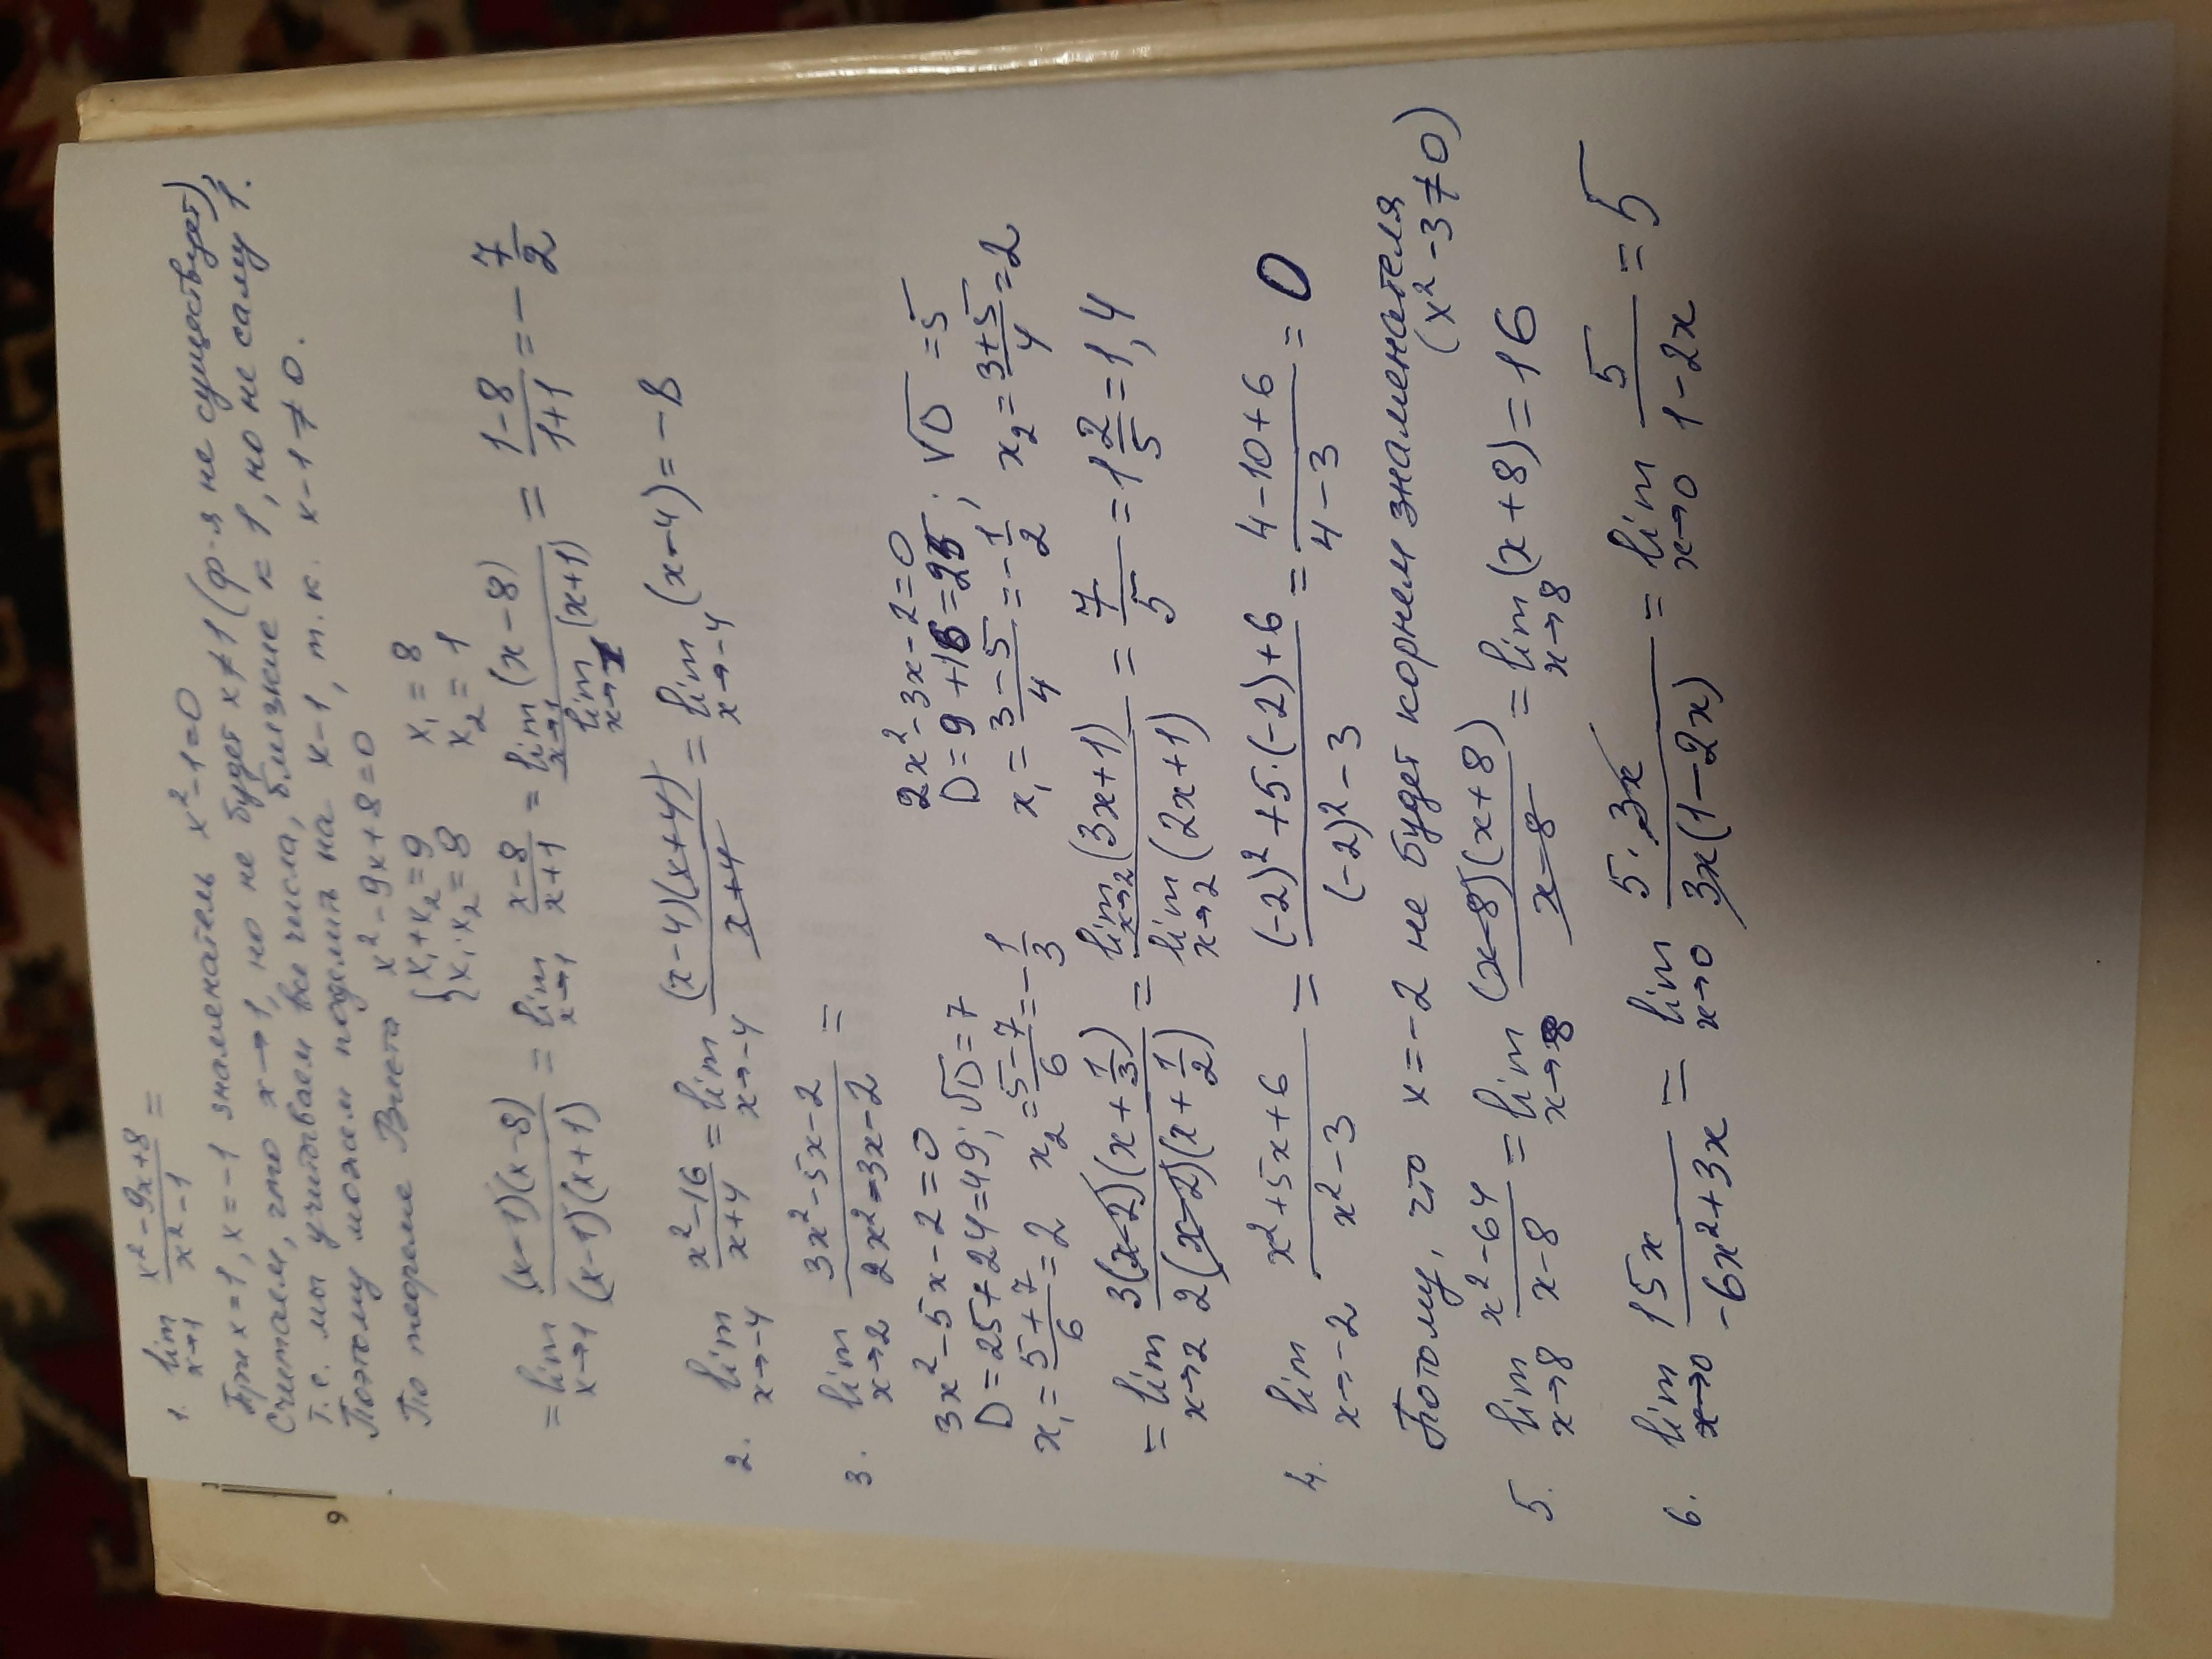 1. lim x→1 (x² - 9x + 8)/(x² - 1) =
При x = 1, x = -1 знаменатель x² - 1 = 0
Считаем, что x → 1, но не будет x ≠ 1 (ф-я не существует),
т.е. мы учитываем все числа, близкие к 1, но не саму 1.
Поэтому можем поделить на x - 1, т.к. x - 1 ≠ 0.
По теореме Виета x² - 9x + 8 = 0
{x₁ + x₂ = 9 x₁ = 8
{x₁·x₂ = 8 x₂ = 1
= lim x→1 (x-1)(x-8)/(x-1)(x+1) = lim x→1 (x-8)/(x+1) = lim x→1 (x-8)/lim x→1 (x+1) = (1-8)/(1+1) = -7/2
2. lim x→-4 (x² - 16)/(x+4) = lim x→-4 (x-4)(x+4)/(x+4) = lim x→-4 (x-4) = -8
3. lim x→2 (3x² - 5x - 2)/(2x² - 3x - 2) =
3x² - 5x - 2 = 0 2x² - 3x - 2 = 0
D = 25 + 24 = 49; √D = 7 D = 9 + 16 = 25; √D = 5
x₁ = (5+7)/6 = 2 x₂ = (5-7)/6 = -1/3 x₁ = (3-5)/4 = -1/2 x₂ = (3+5)/4 = 2
= lim x→2 3(x-2)(x+1/3)/2(x-2)(x+1/2) = lim x→2 (3x+1)/lim x→2 (2x+1) = 7/5 = 1 2/5 = 1,4
4. lim x→-2 (x² + 5x + 6)/(x² - 3) = ((-2)² + 5·(-2) + 6)/((-2)² - 3) = (4 - 10 + 6)/(4 - 3) = 0
Потому, что x = -2 не будет корнем знаменателя
(x² - 3 ≠ 0)
5. lim x→8 (x² - 64)/(x - 8) = lim x→8 (x-8)(x+8)/(x-8) = lim x→8 (x+8) = 16
6. lim x→0 15x/(-6x² + 3x) = lim x→0 5·3x/3x(1-2x) = lim x→0 5/(1-2x) = 5
6